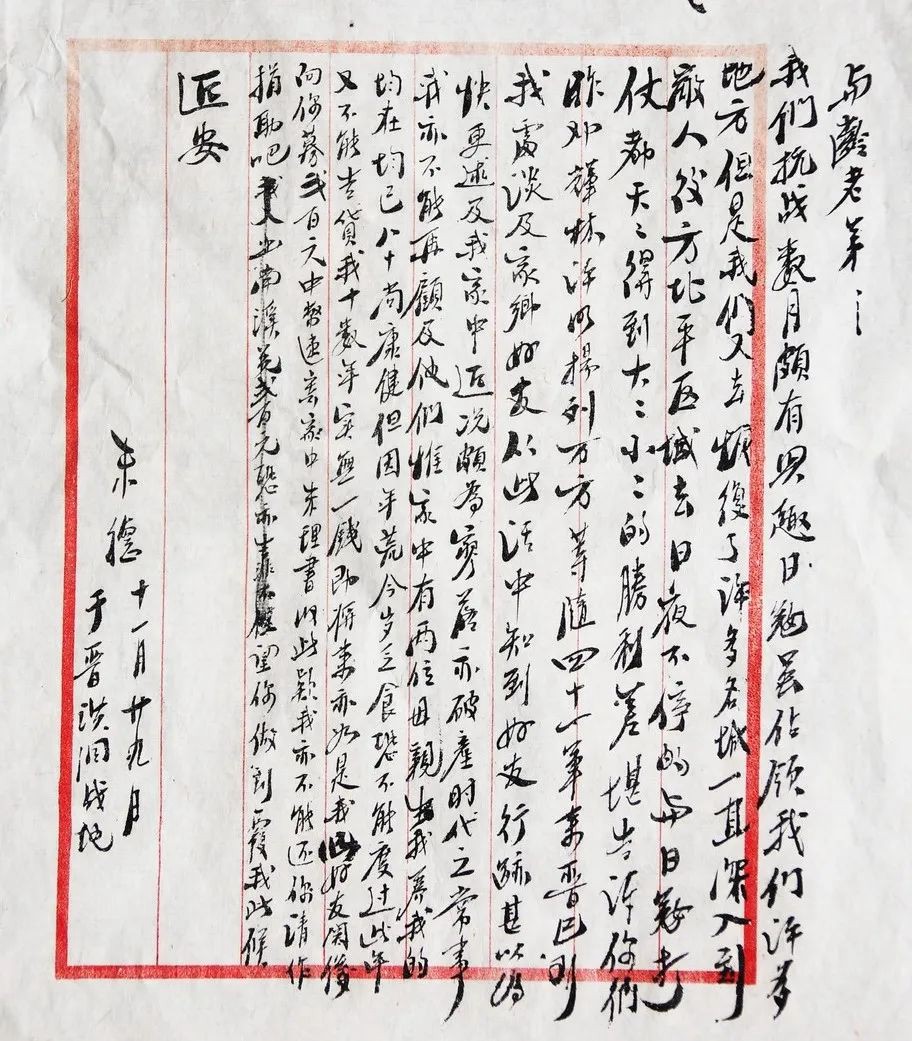 与龄老弟：
我们抗战数月颇有兴趣日寇虽占领我们许多
地方但是我们又去恢复了许多名城一直深入到
敌人后方北平区域去日夜不停的与日寇打
仗都天天得到大大小小的胜利差堪告诉你们
昨邓辉林许明扬刘万方等随四十一军来晋已到
我处谈及家乡好友从此话中知到好友行迹甚以为
快更述及我家中近况颇为寥落亦破产时代之常事
我亦不能再顾及他们惟家中有两位母親生我养我的
均在均已八十尚康健但因年荒今岁乏食恐不能度过此年
又不能告贷我十数年实无一钱即将来亦如是我以好友关系
向你募弍百元中幣速寄家中朱理书收此款我亦不能还你请作
捐助吧 望你做到復我此候
近安
朱德 十一月廿九日
于晋洪洞战地